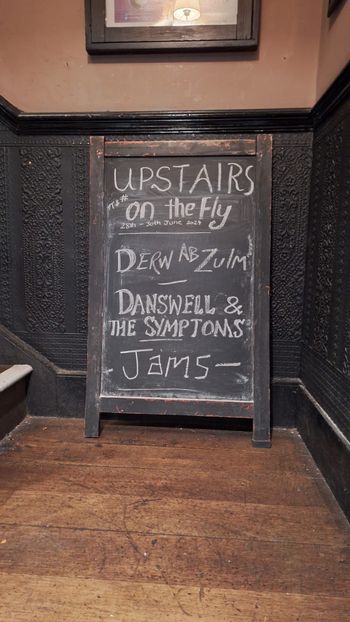 UPSTAIRS
on the Fly
28th - 30th June 2024
DERW AB ZULM
DANSWELL &
THE SYMPTOMS
Jams